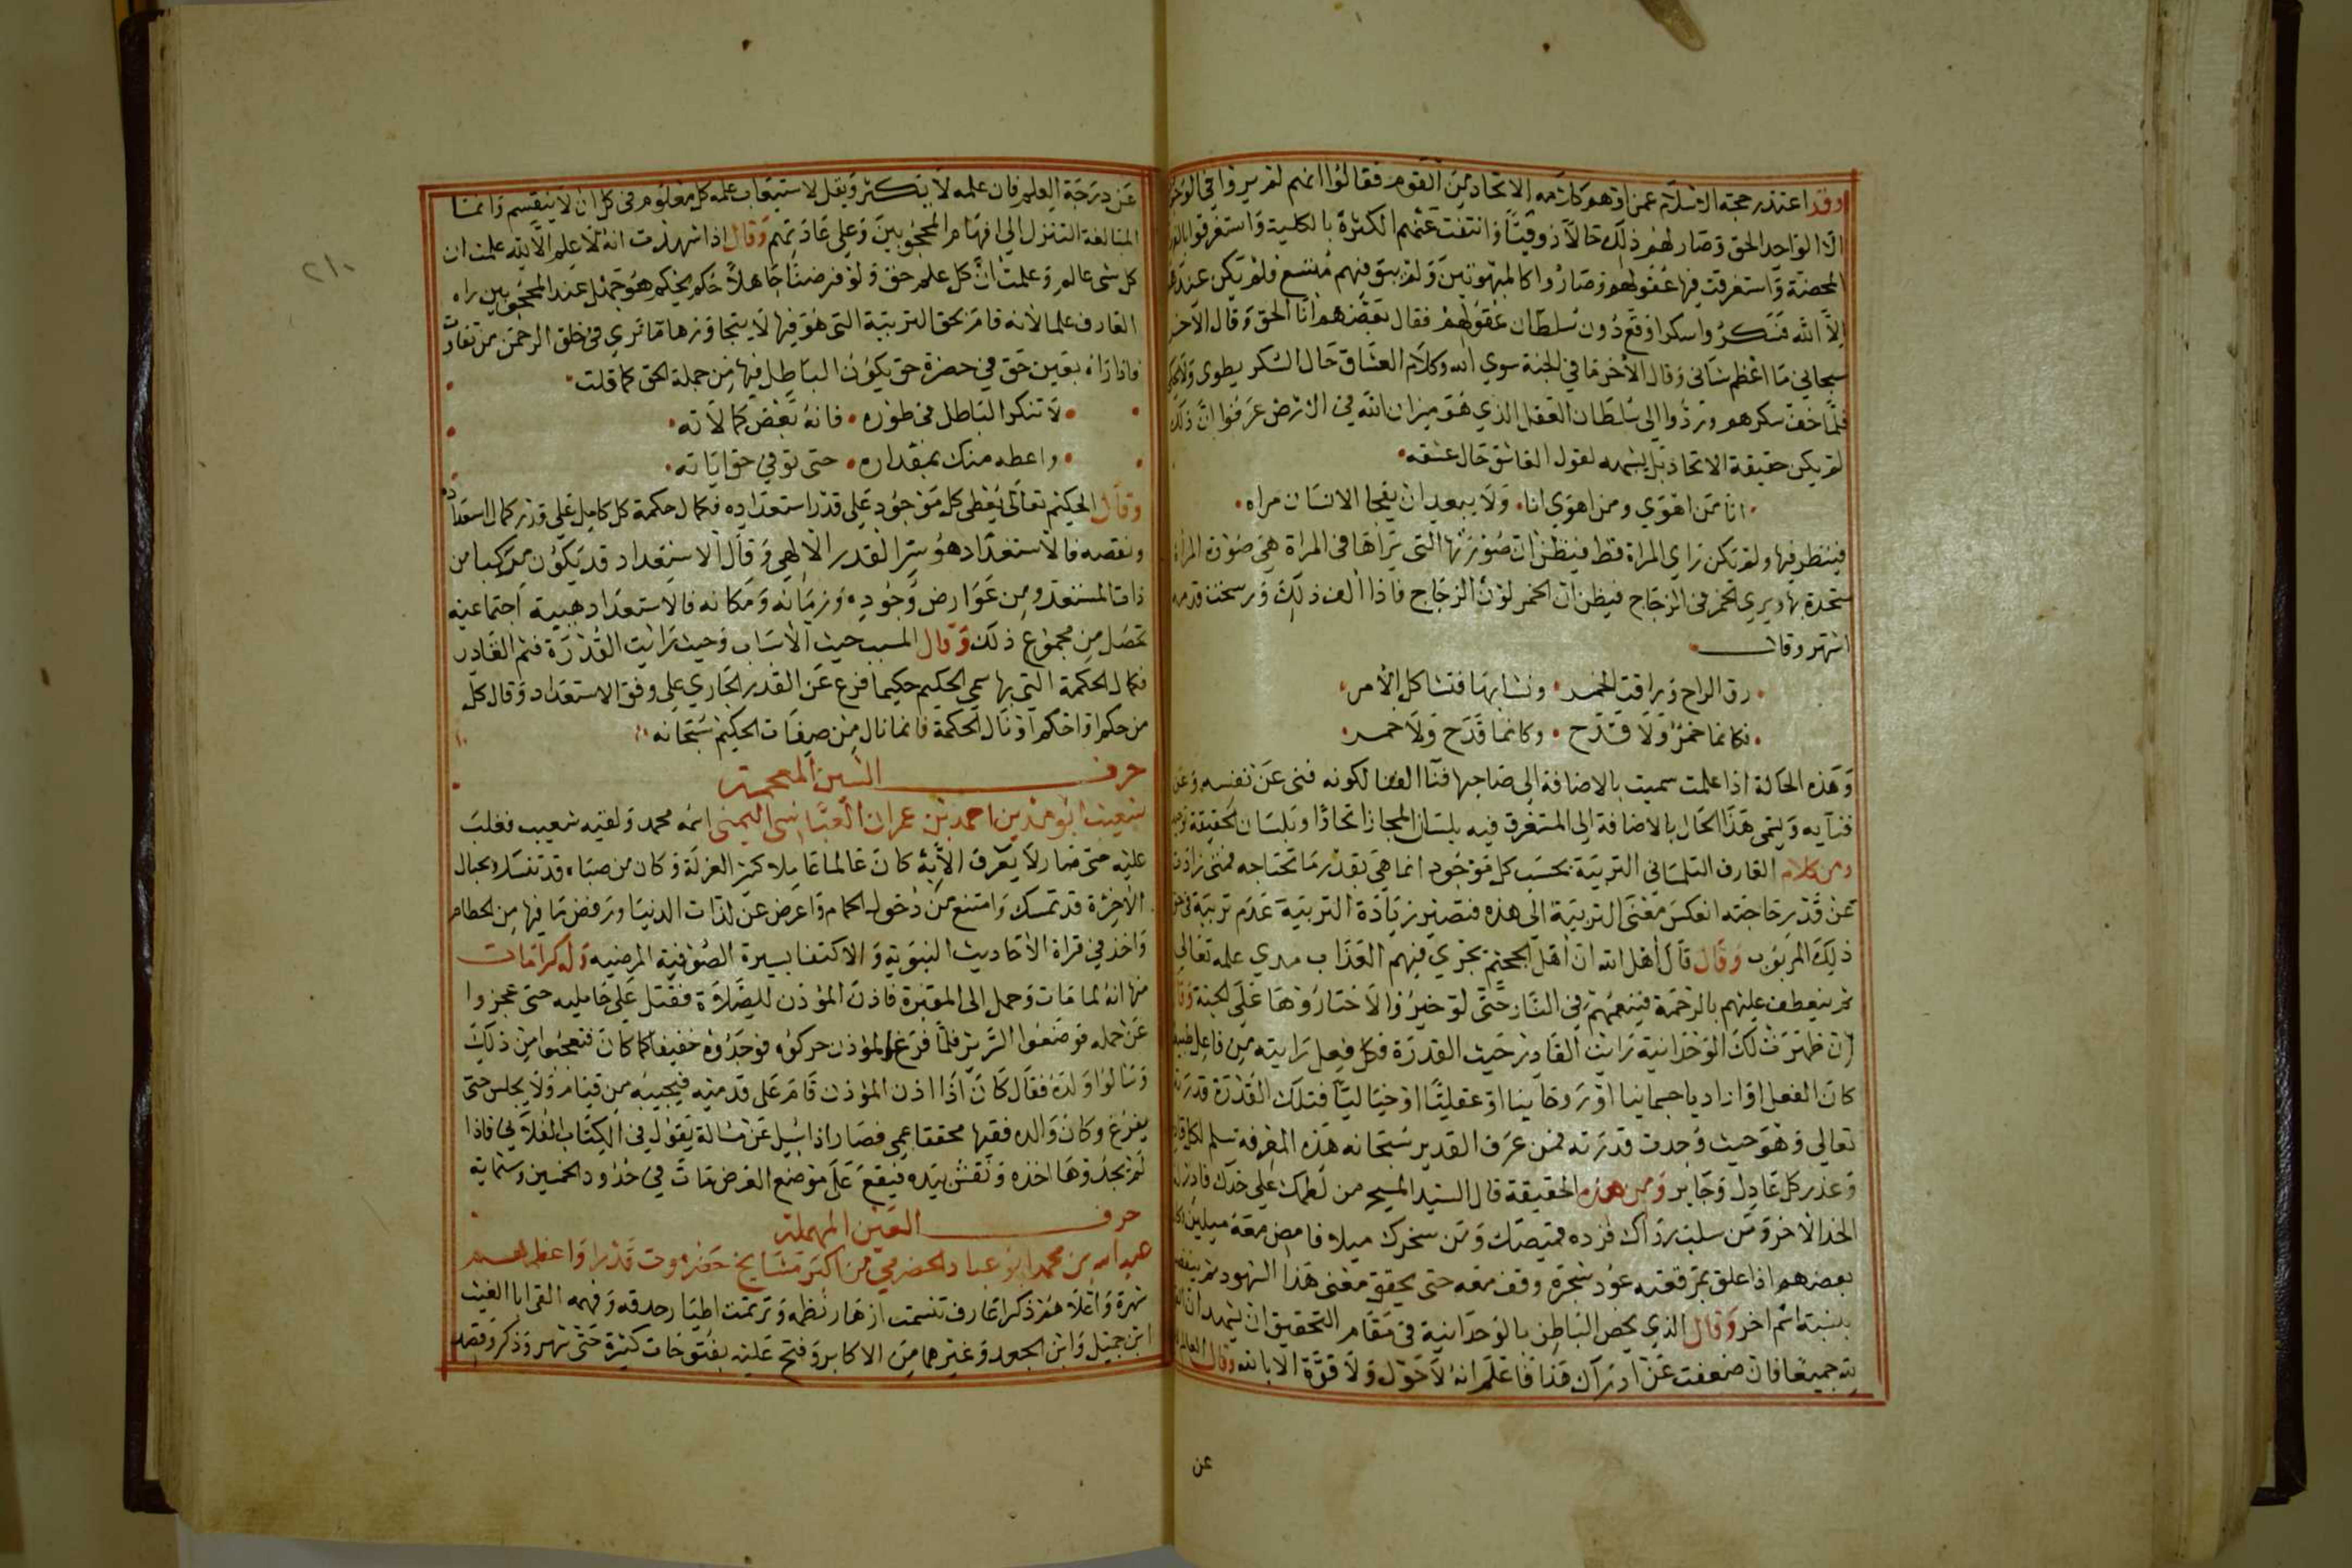 وقد اعتذر حجة الاسلام عمن اوهم كلامه الاتحاد من القوم فقالوا انهم لم يروا في الوجود
الا الواحد الحق وصار لهم ذلك حالا ذوقيا وانتفت عنهم الكثرة بالكلية واستغرقوا بالفردانية
المحضة واستغرقت فيها عقولهم وصاروا كالمبهوتين ولم يبق فيهم متسع فلم يكن عندهم
الا الله فسكروا سكرا وقع دون سلطان عقولهم فقال بعضهم انا الحق وقال الاخر
سبحاني ما اعظم شاني وقال الاخر ما في الجبة سوي الله وكلام العشاق حال السكر يطوى ولا يحكى
فلما خف سكرهم وردوا الى سلطان العقل الذي هو ميزان الله في الارض عرفوا ان ذلك
لم يكن حقيقة الاتحاد بل يشبهه لقول العاشق حال عشقه
انا من اهوي ومن اهوي انا ولا يبعد ان يفجا الانسان مراه
فينظر فيها ولم يكن راي المراة قط فيظن ان صورتها التى يراها فى المراة هي صورة المراة
متحدة بها ويرى الخمر فى الزجاج فيظن ان الخمر لون الزجاج فاذا الف ذلك ورسخت قدمه
اشتهر وقال
رق الزاح وراقت الخمر وتشابها فتشاكل الأمر
فكانما خمر ولا قدح وكانما قدح ولا خمر
وهذه الحالة اذا علمت سميت بالاضافة الى صاحبها فنا الفنا لكونه فنى عن نفسه وعن
فنآيه ويسمى هذا الحال بالاضافة الى المستغرق فيه بلسان المجاز اتحادا وبلسان الحقيقة توحيدا
ومن كلام العارف التلمساني التربية بحسب كل موجود انما هي بقدر ما تحتاجه فمتى زادت
عن قدر حاجته انعكس معنى التربية الى هذه فتصير زيادة التربية عدم تربية في حق
ذلك المربوب وقال قال اهل الله ان اهل الجحيم يجري فيهم العذاب مدي علمه تعالي
ثم ينعطف عليهم بالرحمة فينعمهم في النار حتى لو خيروا لاختاروها على الجنة وقال
ان ظهرت لك الوحدانية رايت القادر حيث القدرة فكل فعل رايته من فاعل طبيعيا
كان الفعل او اراديا جسمانيا او روحانيا او عقليا او خياليا فتلك القدرة قدرته
تعالي وهو حيث وجدت قدرته فمن عرف القدير سبحانه هذه المعرفة سلم لكل قادر
وعذر كل عادل وجاير ومن هذه الحقيقة قال السيد المسيح من لطمك على خدك فادر له
الخد الاخر ومن سلبك رداك فزده قميصك ومن سخرك ميلا فامض معه ميلين وكان
بعضهم اذا علق بمرقعته عود شجرة وقف معه حتى يحقق معنى هذا الشهود ثم ينفصل
بنسبة اسم اخر وقال الذي يخص الباطن بالوحدانية في مقام التحقيق ان يشهد ان القوة
لله جميعا فان ضعفت عن ادراك هذا فاعلم انه لا حول ولا قوة الا بالله وقال العالم
عن
٢١٠
عن درجة العلم فان علمه لا يتكثر ويقل لاستيعاب علمه كل معلوم فى كل ان لا ينقسم وانما
المبالغة التنزل الي افهام المحجوبين وعلى عادتهم وقال اذا شهدت انه لا علم الا لله علمت ان
كل شى عالم وعلمت ان كل علم حق ولو فرضنا جاهلا حكم بحكم هو جهل عند المحجوبين راه
العارف علما لانه قام بحق التربية التى هو فيها لا يتجاوزها ما تري فى خلق الرحمن من تفاوت
فاذا زاه بعين حق في حضرة حق يكون الباطل فيها من جملة الحق كما قلت
لا تنكر الباطل في طوره فانه بعض كمالاته
واعطه منك بمقداره حتى توفي حق اياته
وقال الحكيم تعالى يعطي كل موجود على قدر استعداده فكمال حكمة كل كامل على قدر كمال استعداده
ونقصه فالاستعداد هو سر القدر الالهي وقال الاستعداد قد يكون مركبا من
ذات المستعد ومن عوارض وجوده وزمانه ومكانه فالاستعداد هيية اجتماعيه
تحصل من مجموع ذلك وقال المسبب حيث الاسباب وحيث رايت القدرة فثم القادر
فكمال الحكمة التي بها سمي الحكيم حكيما فرع عن القدر الجاري على وفق الاستعداد وقال كل
من حكم او احكم او نال الحكمة فانما نال من صفات الحكيم سبحانه
حرف الشين المعجمة
شعيب ابو مدين احمد بن عمران العباسي اليمنى اسمه محمد ولقبه شعيب فغلب
عليه حتى صار لا يعرف الا به كان عالما عاملا كثير العزلة وكان من صباه قد تمسك بحبال
الاخرة قد تمسك وامتنع من دخول الحمام واعرض عن لذات الدنيا ورفض ما فيها من الحطام
واخذ في قراة الاحاديث النبوية والاكتفا بسيرة الصوفية المرضيه وله كرامات
منها انه لما مات وحمل الى المقبرة فاذن المؤذن للصلاة فثقل على حامليه حتى عجزوا
عن حمله فوضعوا السرير فلما فرغ المؤذن حركوه فوجدوه خفيفا كما كان فتعجبوا من ذلك
وسالوا ولده فقال كان اذا اذن المؤذن قام على قدميه فيجيبه من قيام ولا يجلس حتى
يفرغ وكان والده فقيها محققا عمي فصار اذا سيل عن مسالة يقول في الكتاب الفلاني فاذا
لم تجدوها اخذه وفتش بيده فيقع على موضع الغرض مات في حدود الخمسين وستماية
حرف العين المهملة
عبد الله بن محمد ابو عباد الحضرمي من اكبر مشايخ حضرموت قدرا واعظمهم
شهرة واعلاهم ذكرا عارف تنسمت ازهار نظمه وترنمت اطيار حدقه وفهمه القي ابا الغيث
ابن جميل وابن الجعد وغيرهما من الاكابر وفتح عليه بفتوحات كثيرة حتى شهر وذكر وقصد